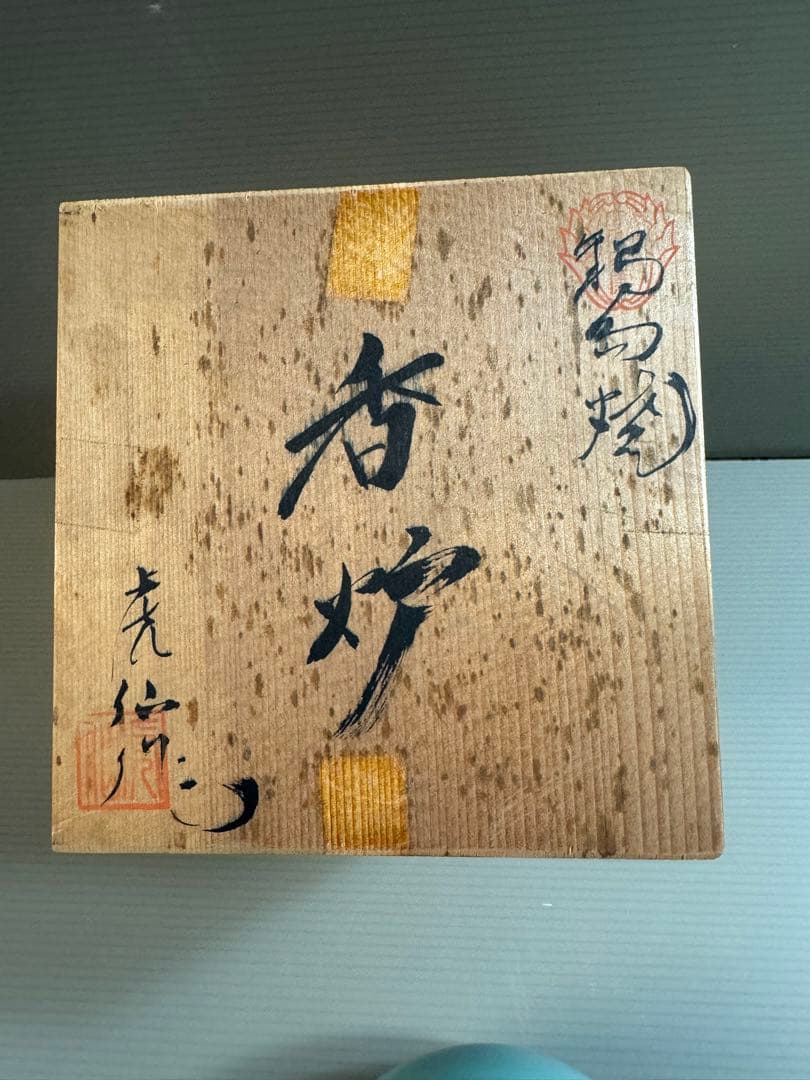 鍋島焼
香炉
虎仙